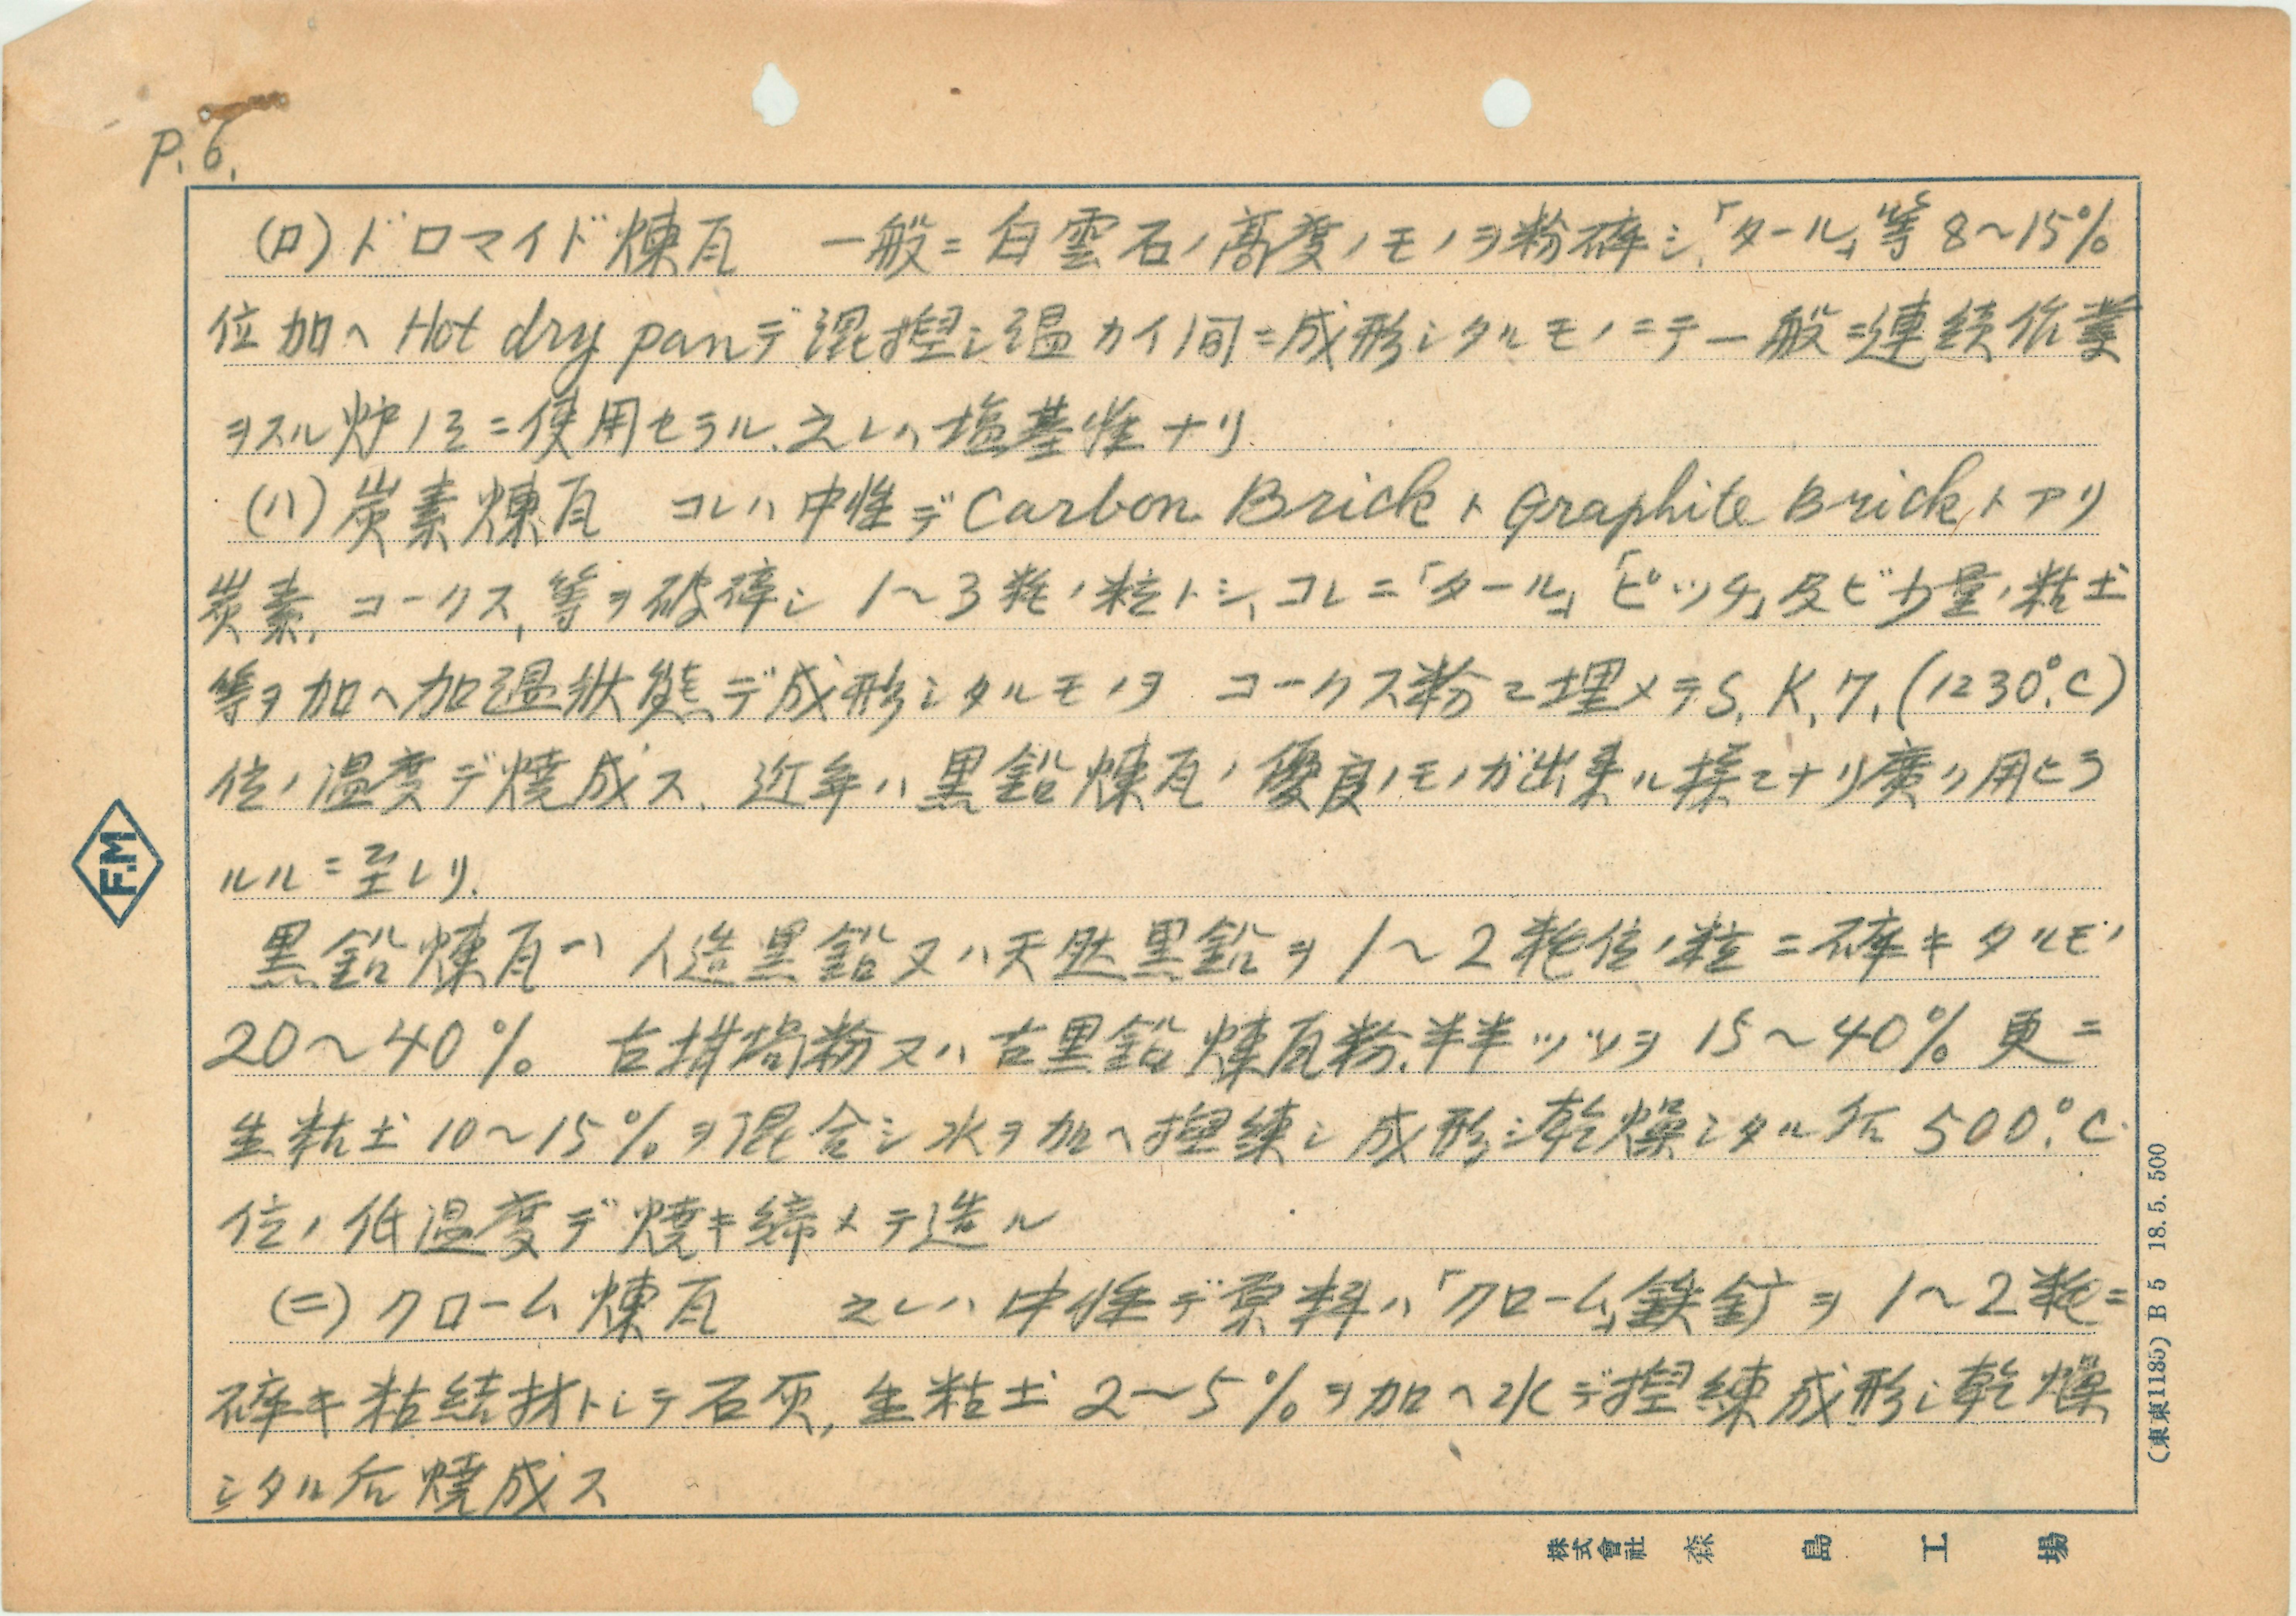 P.6.
(ロ)ドロマイド煉瓦　一般ニ白雲石ノ高度ノモノヲ粉砕シ、「タール」等8〜15%
位加ヘHot dry panデ混捏シ温カイ間ニ成形シタルモノニテ一般ニ連続作業
ヲスル炉ノミニ使用セラル、之レハ塩基性ナリ
(ハ)炭素煉瓦　コレハ中性デCarbon Brickト Graphite Brick,トアリ
炭素,コークス,等ヲ破碎シ 1〜3粍ノ粒トシ、コレニ「タール」「ピッチ」及ビ少量ノ粘土
等ヲ加ヘ加温状態デ成形シタルモノヲ コークス粉ニ埋メテS.K.7.(1230°C)
位ノ温度デ焼成ス、近年ハ黒鉛煉瓦ノ優良ノモノガ出来ル様ニナリ廣ク用ヒラ
ルルニ至レリ.
黒鉛煉瓦ハ人造黒鉛又ハ天然黒鉛ヲ 1〜2粍位ノ粒ニ砕キタルモノ
20〜40% 古坩堝粉又ハ古黒鉛煉瓦粉、半半ツツヲ 15〜40% 更ニ
生粘土10〜15%ヲ混合シ水ヲ加ヘ捏練シ成形シ乾燥シタル后500°C
位ノ低温度デ焼キ締メテ造ル
(ニ)クローム煉瓦　之レハ中性デ原料ハ「クローム」鉄鉱ヲ 1〜2粍ニ
砕キ粘結材トシテ石灰,生粘土 2〜5%ヲ加ヘ水デ捏練成形シ乾燥
シタル后焼成ス
F.M
(東東1185) B5 18.5.500
株式會社 森島工場